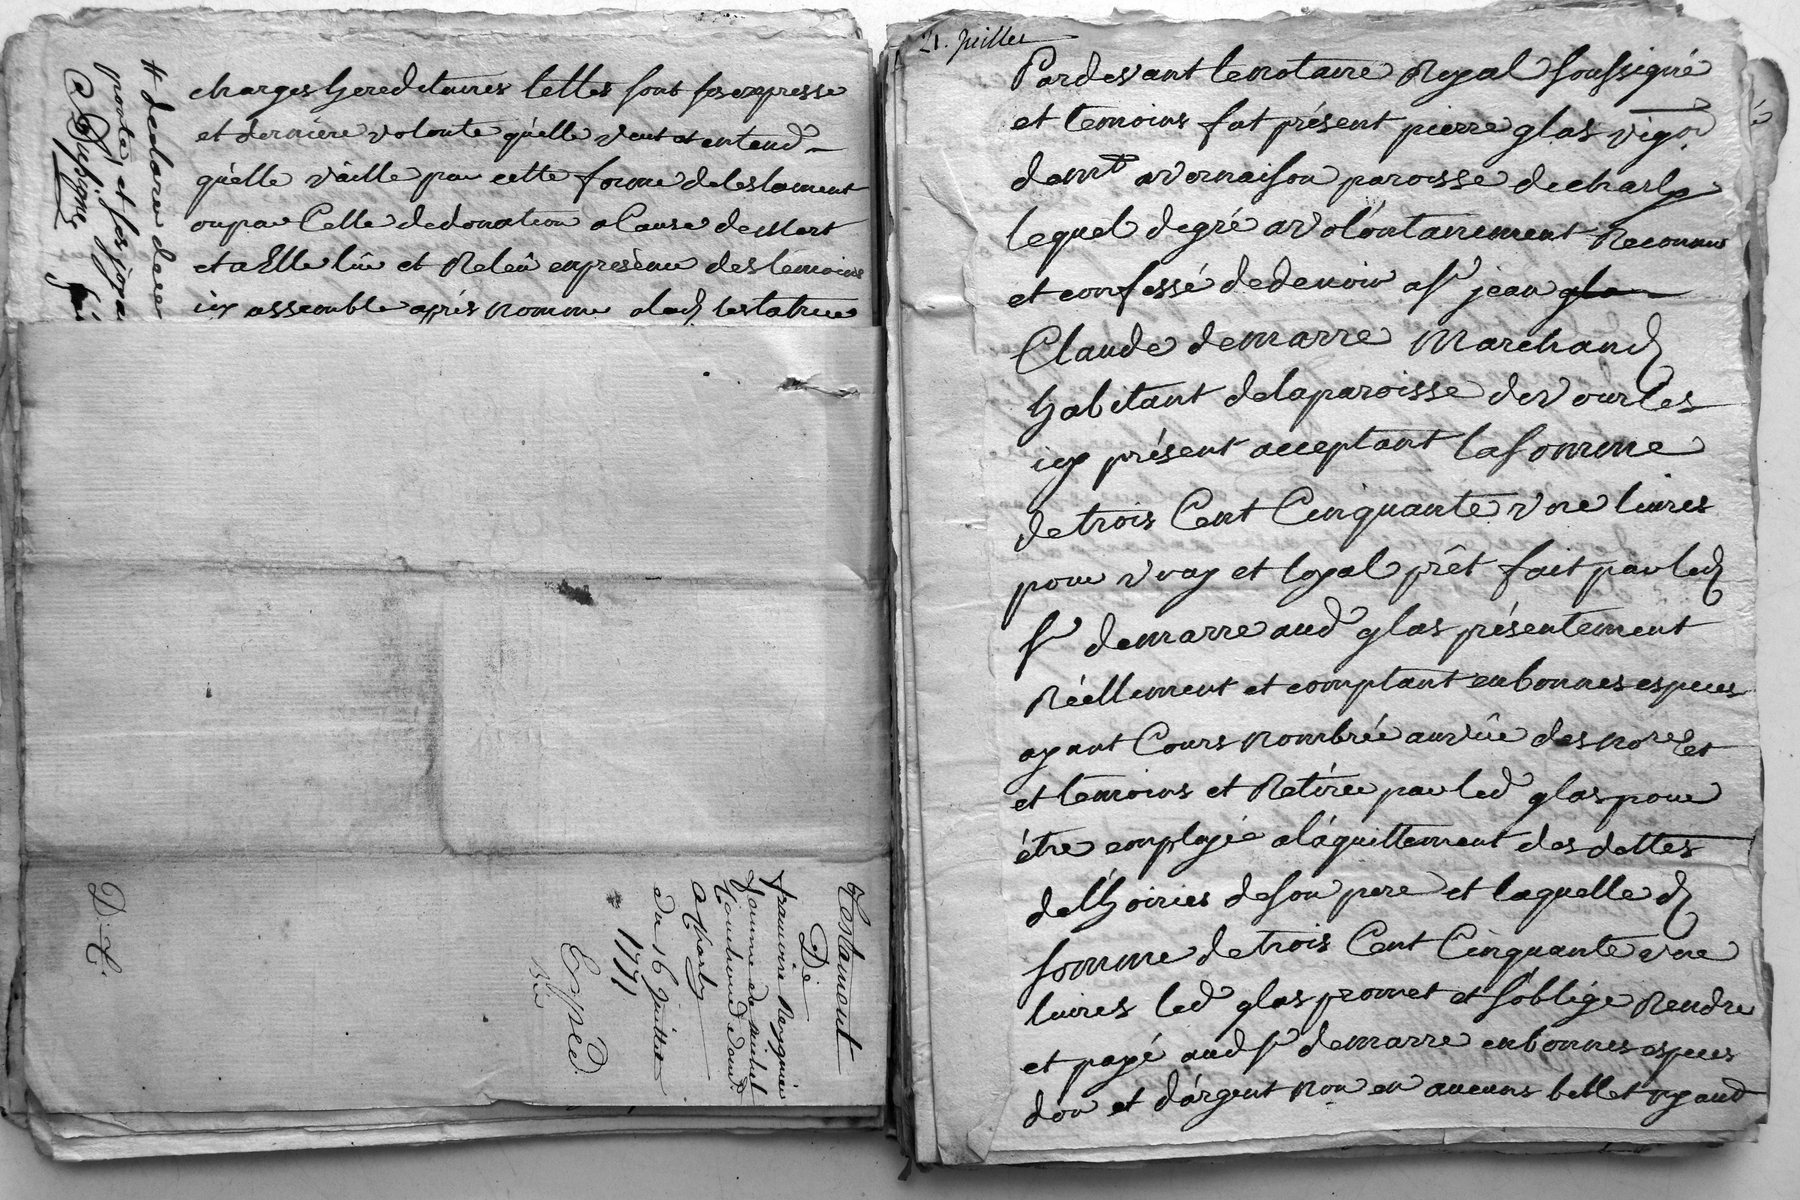 charges hereditaires telles sont ses expresse
et derniere volonte qu'elle veut et entend
qu'elle vaille par cette forme de testament
ou par Celle de donation a Cause de Mort
et a Elle lüe et Releüe en presence des temoins
icy assemble aprés nommé alad testatrice
# declaré de ce
Testament
De
francoise Reygnier
femme de michel
a Charly
du 16 juillet
1771
Expéd.
D. C.
21. Juillet
Pardevant le notaire Royal soussigné
et temoins fut présent pierre glas vigon
demt a vernaison paroisse de charly
lequel de gré a volontairement Reconnu
et confessé de devoir a Sr jean glas
Claude demarre Marchand
habitant de la paroisse de vourles
icy présent acceptant la somme
de trois Cent Cinquante vne livres
pour vray et loyal prêt fait par led
Sr demarre aud glas présentement
Réellement et comptant en bonnes especes
ayant Cours nombrée au vüe des nores et
et temoins et Retirée par led glas pour
étre employée a l'áquittement des dettes
de l'hoiries de son pere et laquelle d
somme de trois Cent Cinquante vne
livres led glas promet et s'oblige Rendre
et payé aud Sr demarre en bonnes especes
d'or et d'árgent non en aucuns billet ayant